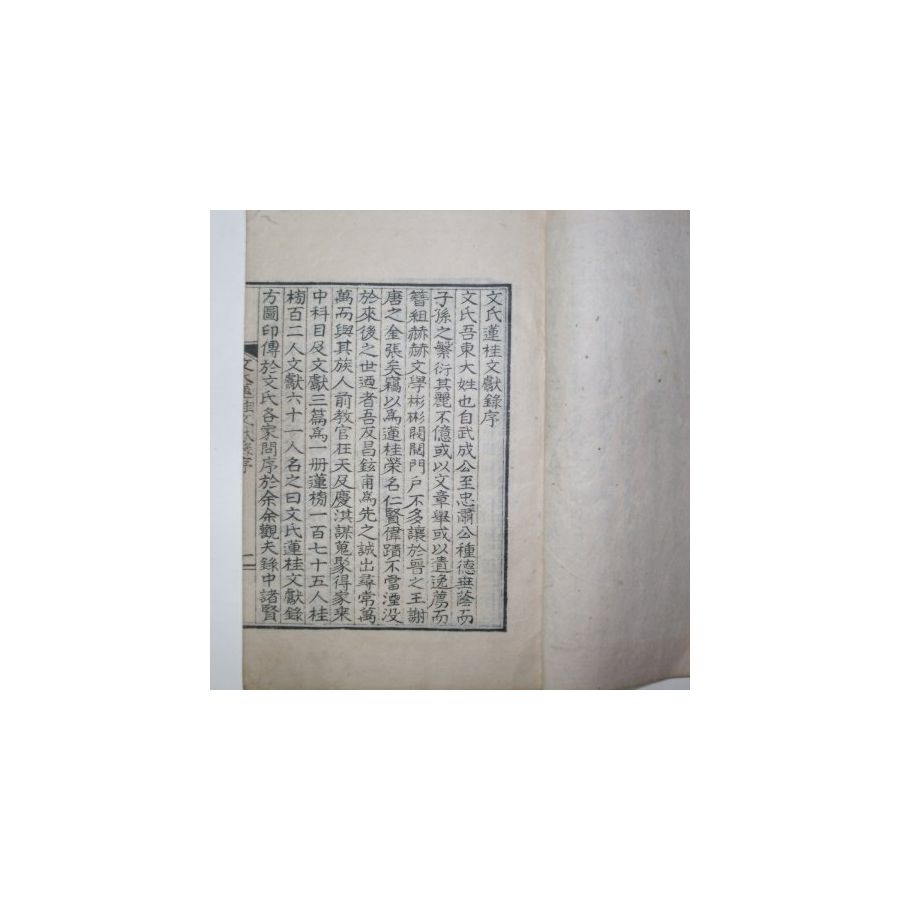 文氏蓮桂文獻錄序
文氏吾東大姓也自武成公至忠肅公種德無蔭而
子孫之繁衍其麗不億或以文章舉或以遺逸薦而
簪組赫赫文學彬彬閥閱門戶不多讓於晉之王謝
唐之金張矣竊以爲蓮桂榮名仁賢偉蹟不當湮没
於來後之世迺者吾友昌鉉甫爲先之誠出尋常萬
萬而與其族人前教官在天及慶淇謀蒐聚得家乘
中科目及文獻三篇爲一册蓮榜一百七十五人桂
榜百二人文獻六十一人名之曰文氏蓮桂文獻錄
方圖印傳於文氏各家問序於余余觀夫錄中諸賢
文氏蓮桂文獻錄序
一